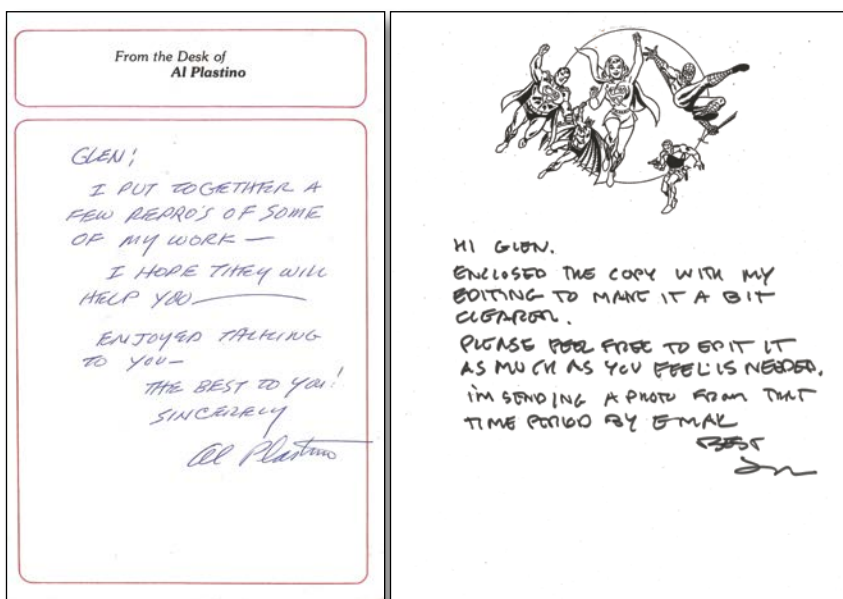 From the Desk of
Al Plastino
GLEN;
I PUT TOGETHER A
FEW REPRO'S OF SOME
OF MY WORK —
I HOPE THEY WILL
HELP YOU ———
ENJOYED TALKING
TO YOU —
THE BEST TO YOU!
SINCERELY
Al Plastino
HI GLEN.
ENCLOSED THE COPY WITH MY
EDITING TO MAKE IT A BIT
CLEARER.
PLEASE FEEL FREE TO EDIT IT
AS MUCH AS YOU FEEL IS NEEDED.
I'M SENDING A PHOTO FROM THAT
TIME PERIOD BY EMAIL
BEST